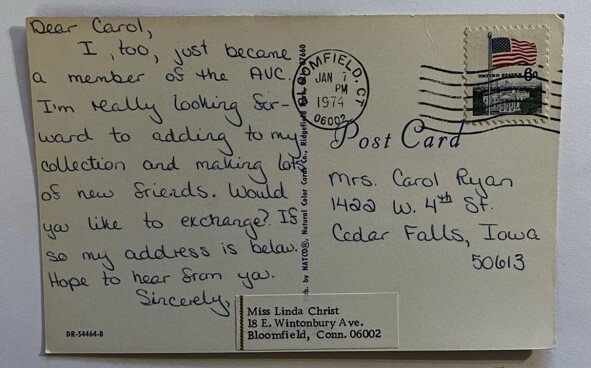 Dear Carol,
I, too, just became
a member of the AVC.
I'm really looking for-
ward to adding to my
collection and making lots
of new friends. Would
you like to exchange? If
so my address is below.
Hope to hear from you.
Sincerely,
Miss Linda Christ
18 E. Wintonbury Ave.
Bloomfield, Conn. 06002
DR-54464-B
by NATCO®, Natural Color Card Co., Ridgefield
07660
BLOOMFIELD, CT
JAN 7
PM
1974
06002
UNITED STATES 6c
Post Card
Mrs. Carol Ryan
1422 W. 4th St.
Cedar Falls, Iowa
50613